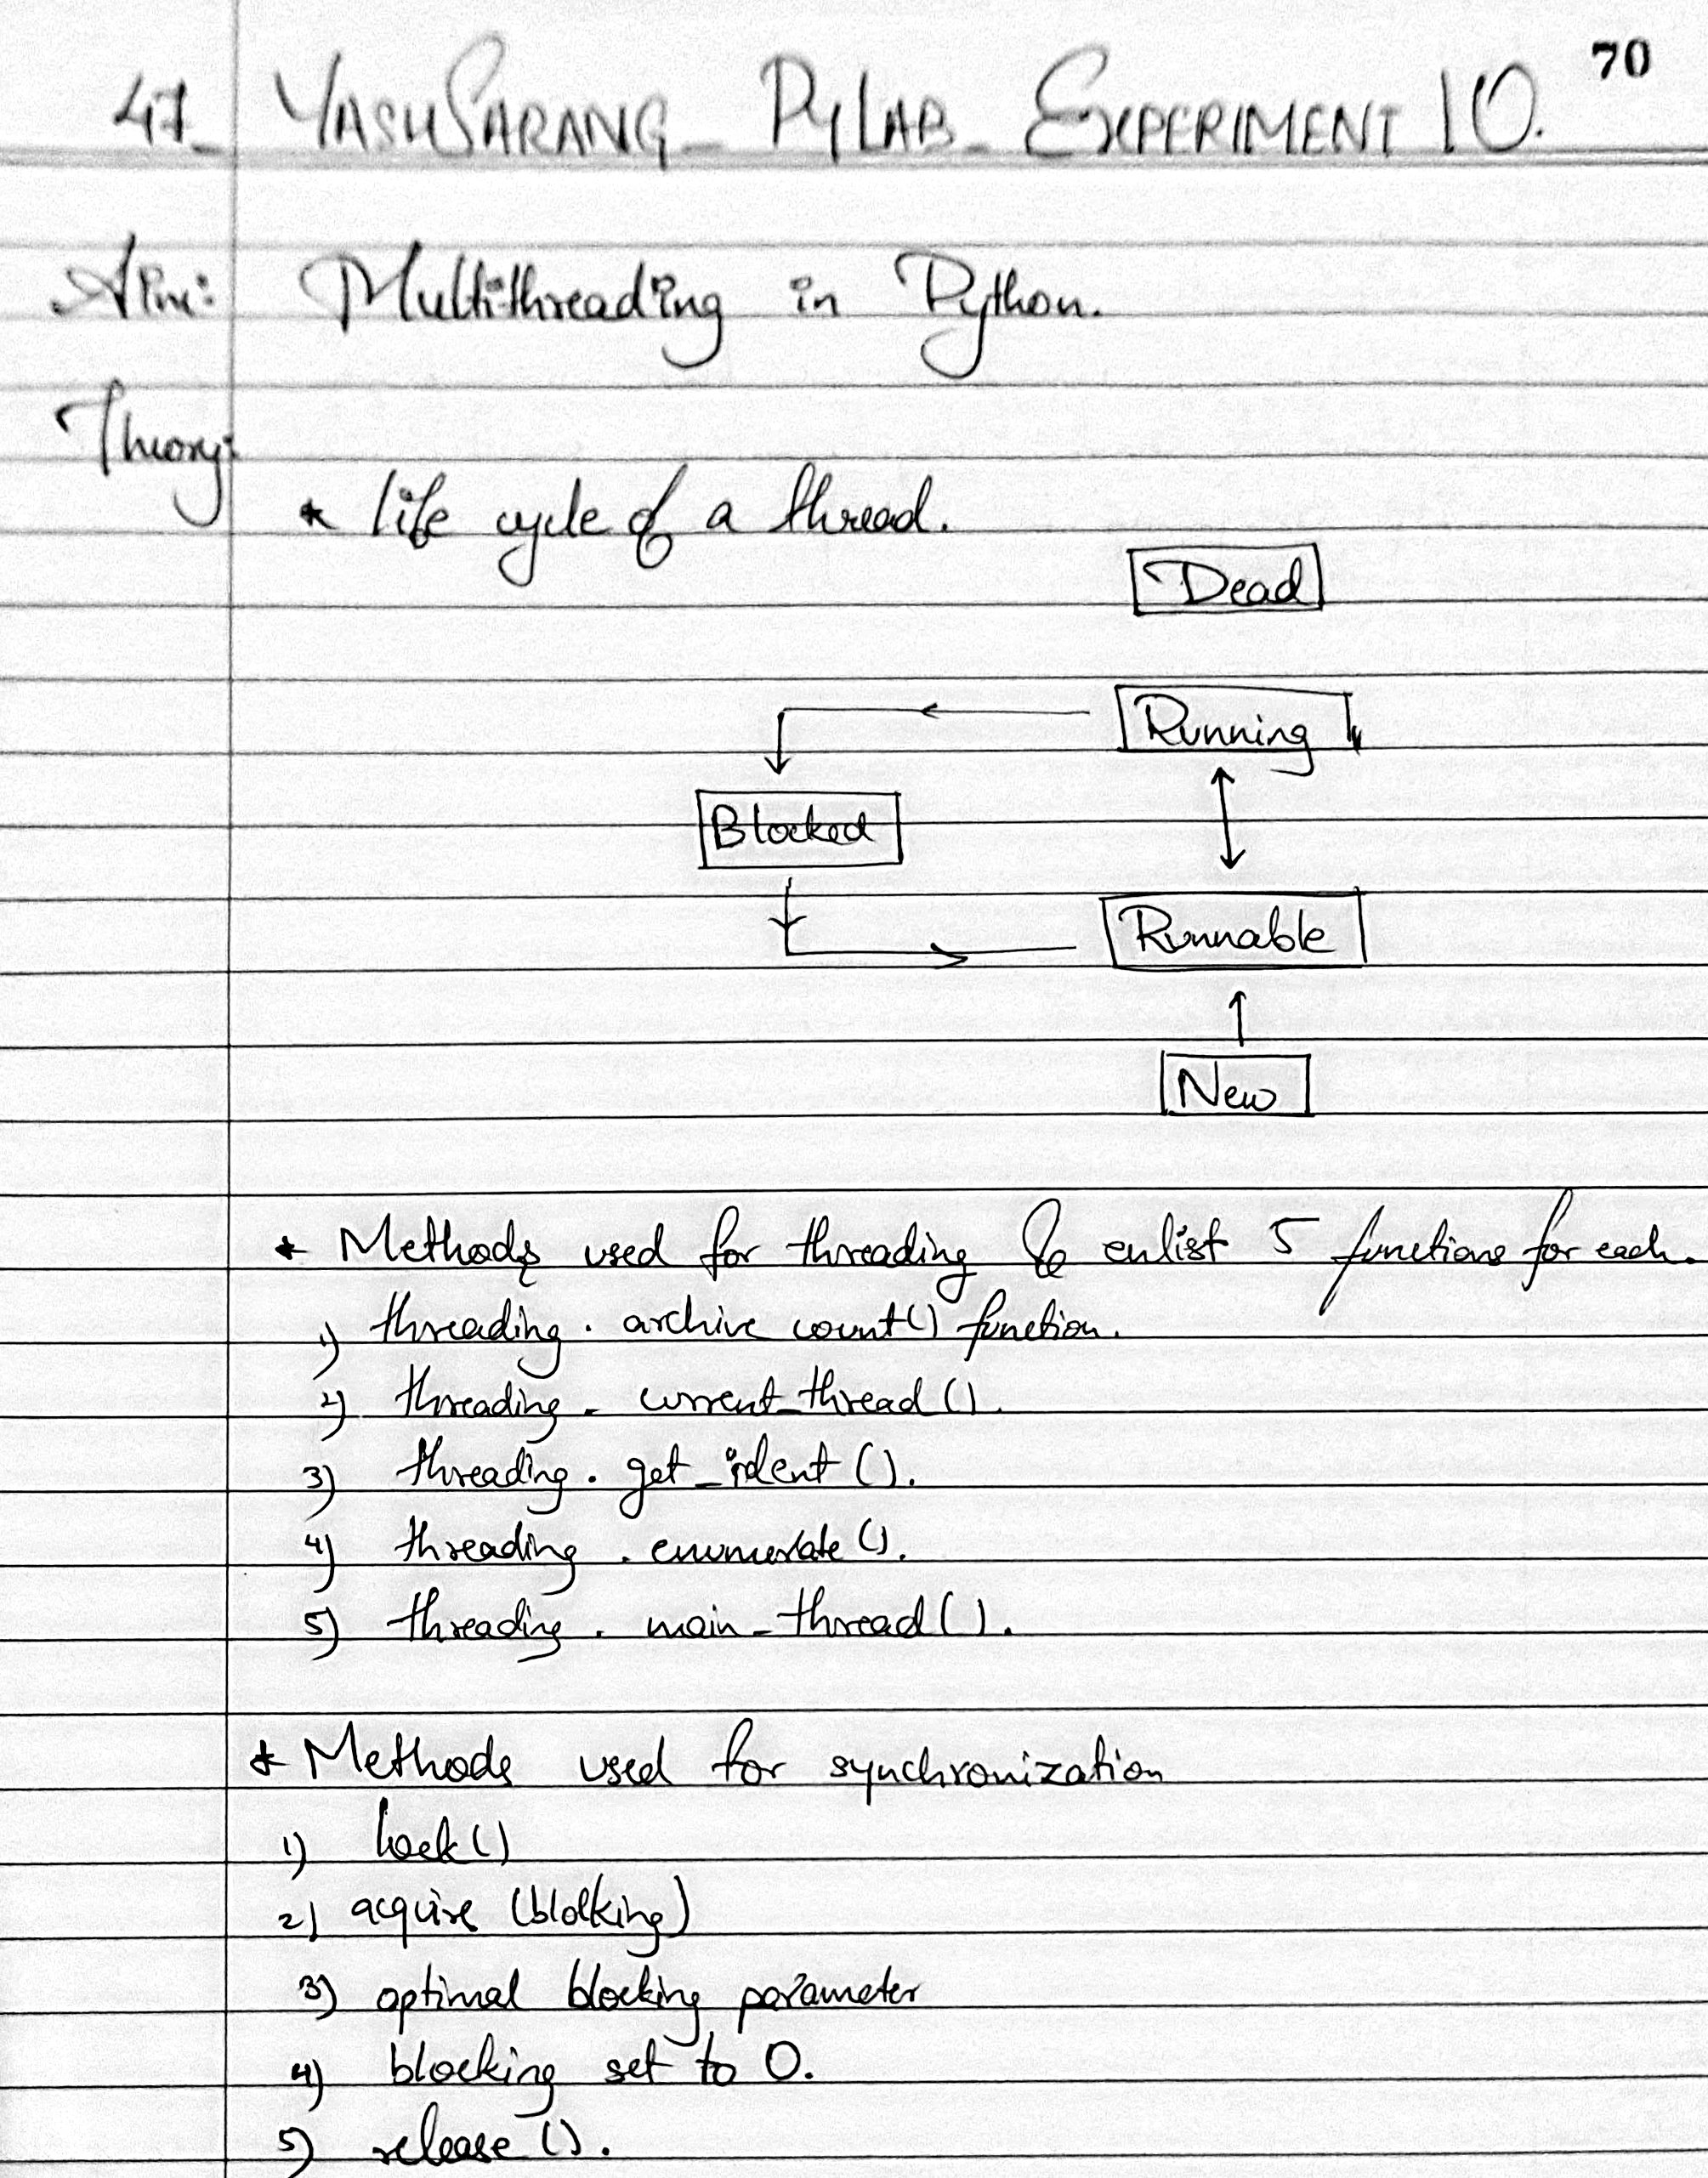 70
47_ YASHSARANG_ PYLAB_ EXPERIMENT 10.
Aim: Multithreading in Python.
Theory:
* life cycle of a thread.
Dead
Running
Blocked
Runnable
New
* Methods used for threading & enlist 5 functions for each.
1) threading. archive count() function.
2) threading. current_thread().
3) threading. get_ident().
4) threading. enumerate().
5) threading. main_thread().
* Methods used for synchronization
1) lock()
2) acquire (blocking)
3) optimal blocking parameter
4) blocking set to 0.
5) release().